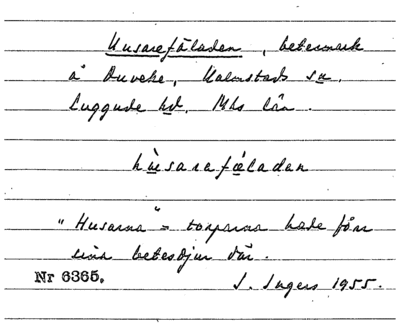 Husarefäladen, betesmark
å Duveke, Kalmstads sn,
Luggude hd. Mhs län.
hùsarafǽladan
"Husarna" = torparna hade förr
sina betesdjur där.
Nr 6365.
I. Ingers 1955.